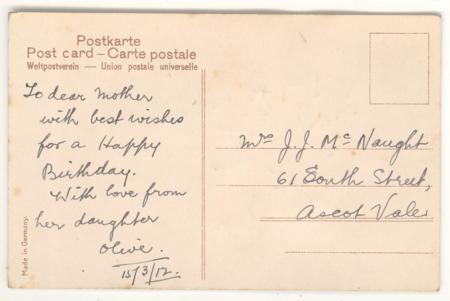 Postkarte
Post card — Carte postale
Weltpostverein — Union postale universelle
To dear Mother
with best wishes
for a Happy
Birthday.
With love from
her daughter
Olive.
15/3/12.
Mrs J. J. McNaught
61 South Street,
Ascot Vale
Made in Germany.